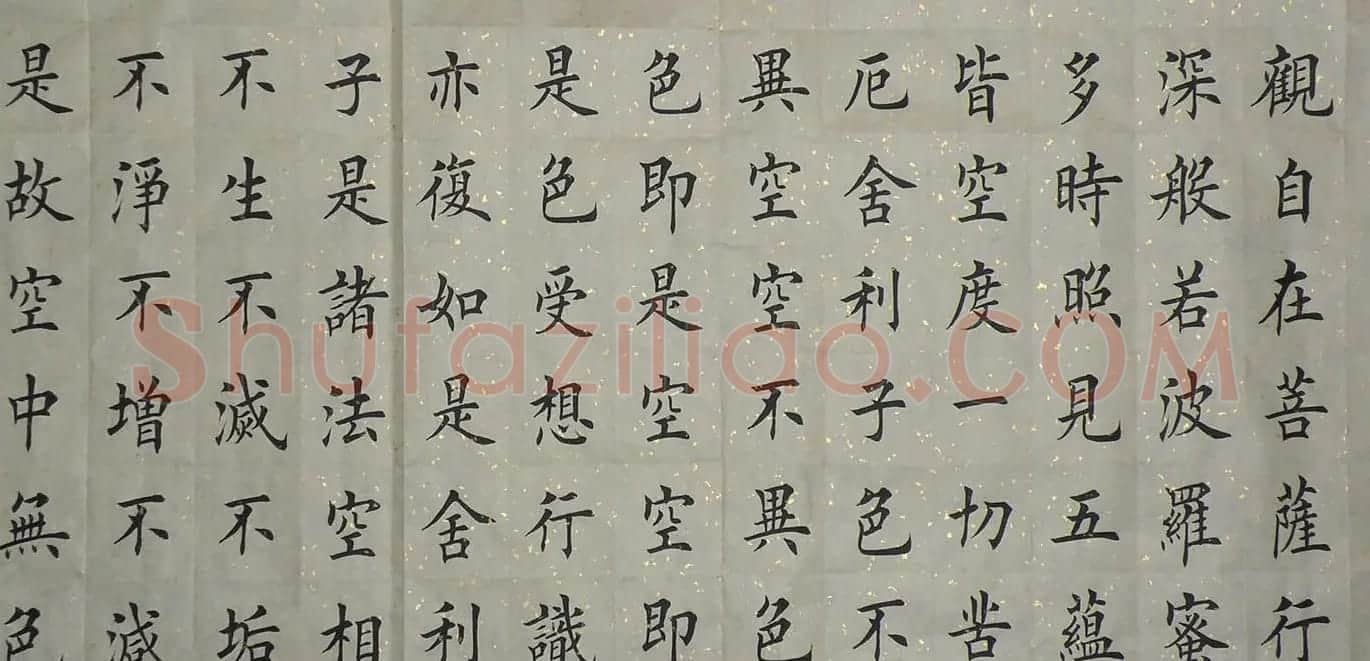 觀自在菩薩行
深般若波羅蜜
多時照見五蘊
皆空度一切苦
厄舍利子色不
異空空不異色
色即是空空即
是色受想行識
亦復如是舍利
子是諸法空相
不生不滅不垢
不淨不增不減
是故空中無色
Shufaziliao.COM